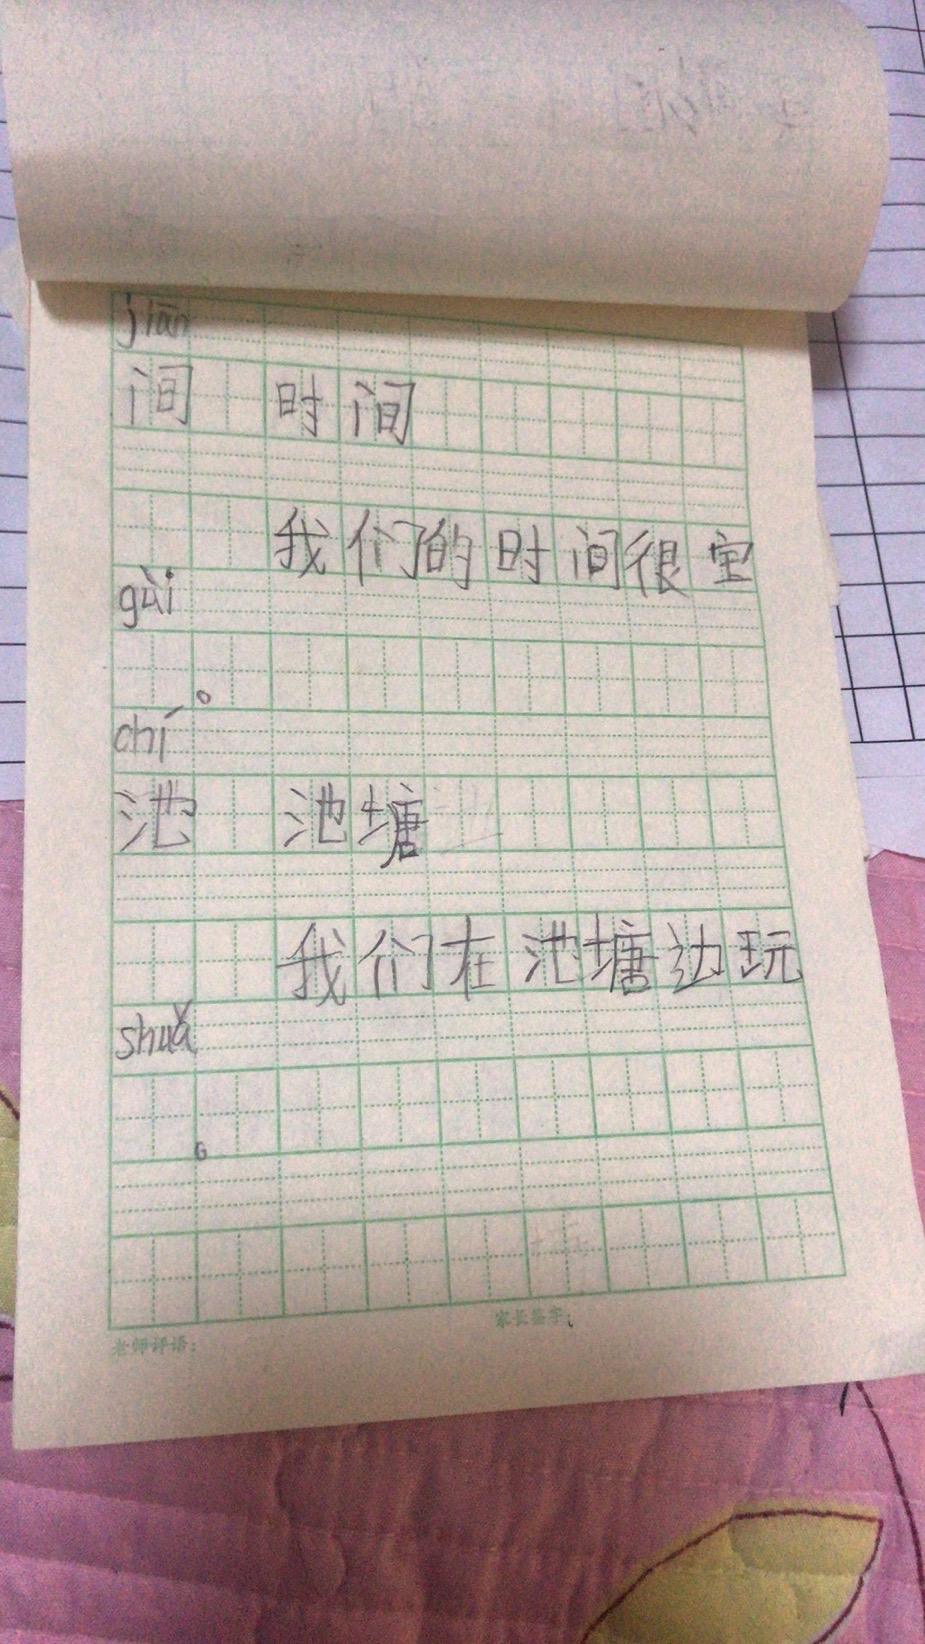 jiān
间 时间
我们的时间很宝
gùi
。
chí
池 池塘
我们在池塘边玩
shuǎ
。
家长签字:
老师评语: